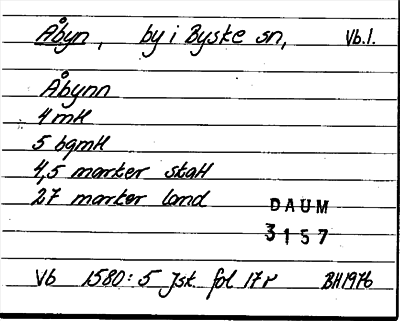 Åbyn, by i Byske sn, Vb.l.
Åbynn
4 mtl
5 bgmtl
4,5 marker skatt
27 marker land
DAUM
3157
Vb 1580:5 Jsk. fol 17r BH1976